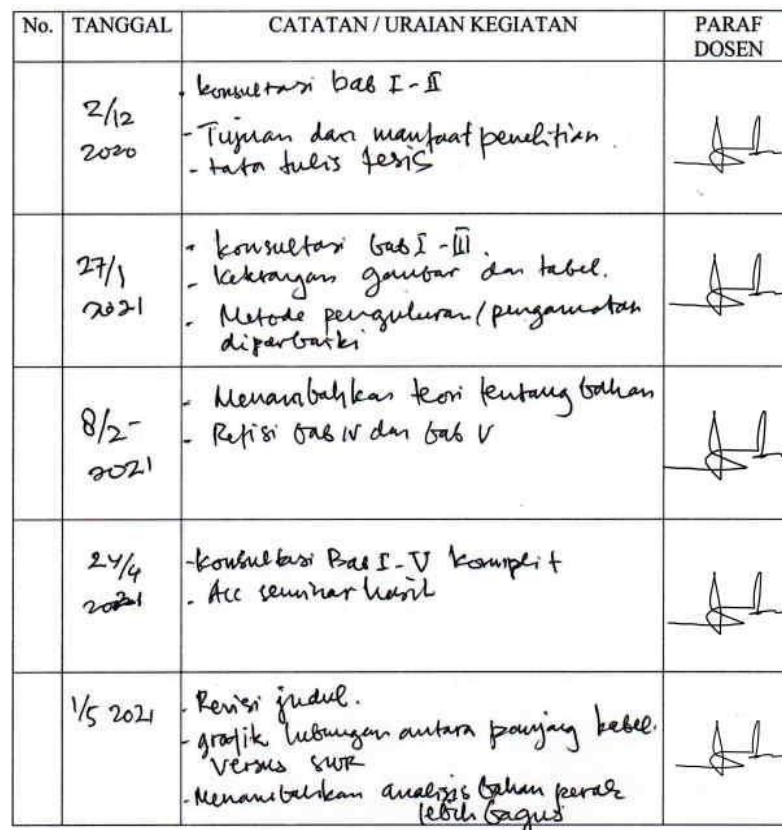 No. TANGGAL CATATAN / URAIAN KEGIATAN PARAF DOSEN
2/12 2020
- konsultasi bab I - II
- Tujuan dan manfaat penelitian
- tata tulis tesis
27/1 2021
- konsultasi bab I - III.
- keterangan gambar dan tabel.
- Metode pengukuran/pengamatan
diperbaiki
8/2- 2021
- Menambahkan teori tentang bahan
- Refisi bab IV dan bab V
24/4 2021
- konsultasi Bab I - V komplit
- Acc seminar hasil
1/5 2021
- Revisi judul.
- grafik hubungan antara panjang kabel.
versus SWR
- Menambahkan analisis bahan perak
lebih bagus